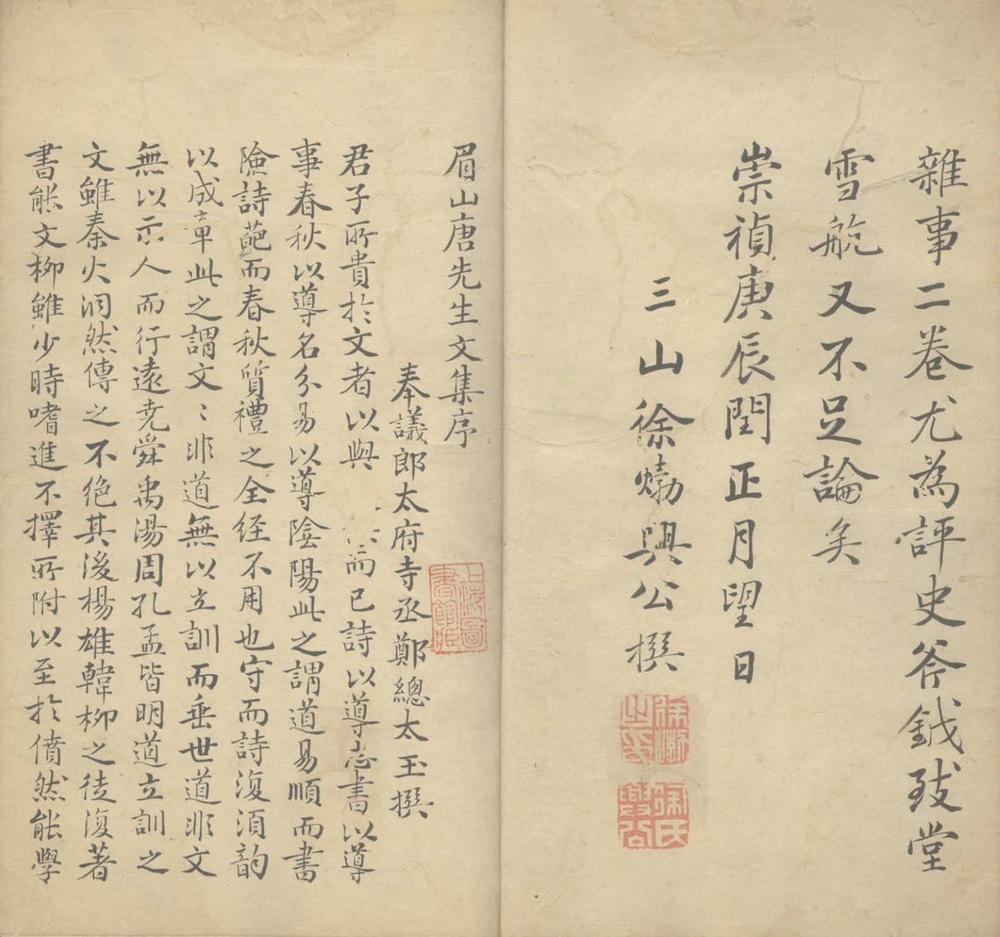 雜事二卷尤為評史斧鉞致堂
雪航又不足論矣
崇禎庚辰閏正月望日
三山徐𤊹興公撰
徐𤊹之印
徐氏興公
眉山唐先生文集序
奉議郎太府寺丞鄭總太玉撰
上海圖書館藏
君子所貴於文者以與而已詩以導志書以導
事春秋以導名分易以導陰陽此之謂道易順而書
險詩葩而春秋質禮之全经不用也守而詩復須韵
以成章此之謂文〻非道無以立訓而垂世道非文
無以示人而行遠尭舜禹湯周孔孟皆明道立訓之
文雖秦火洞然傳之不绝其後楊雄韓柳之徒復著
書能文柳雖少時嗜進不擇所附以至於僨然能學